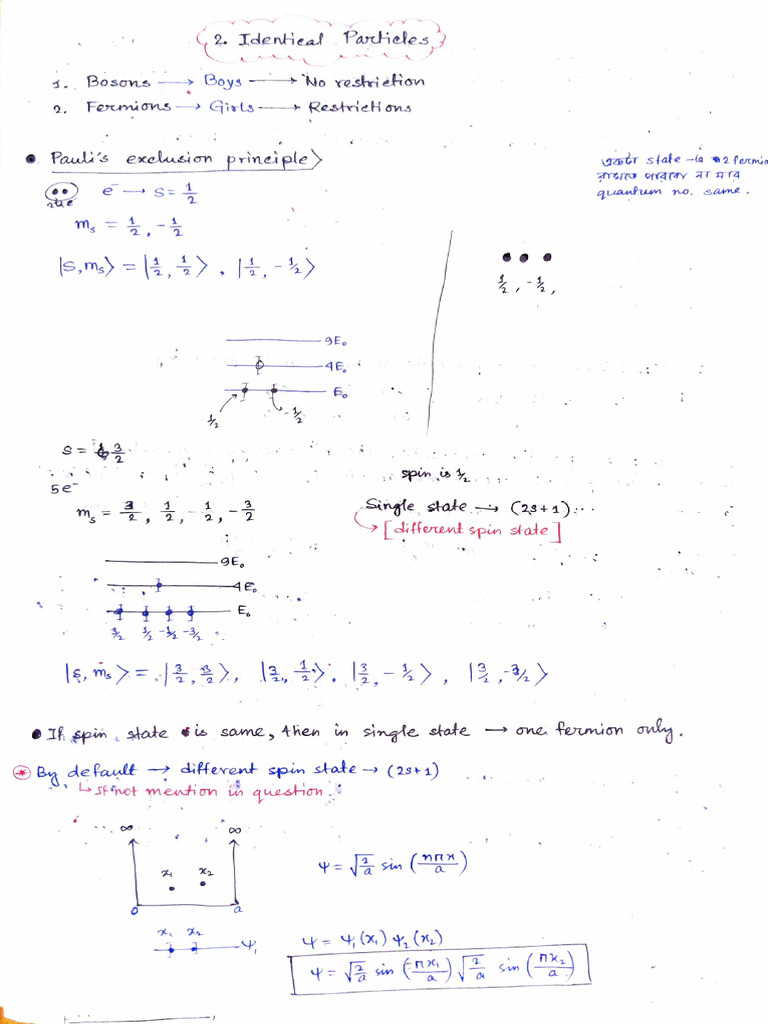 2. Identical Particles
1. Bosons → Boys → No restriction
2. Fermions → Girls → Restrictions
• Pauli's exclusion principle
একটা state-এ 2 fermion
না যার
quantum no. same.
e⁻ → S = 1/2
m_s = 1/2, -1/2
|S, m_s⟩ = |1/2, 1/2⟩, |1/2, -1/2⟩
1/2, -1/2,
9E₀
4E₀
E₀
1/2 -1/2
S = 3/2
5e⁻
m_s = 3/2, 1/2, -1/2, -3/2
spin is 1/2
Single state → (2s+1)...
→ [different spin state]
9E₀
4E₀
E₀
3/2 1/2 -1/2 -3/2
|s, m_s⟩ = |3/2, 3/2⟩, |3/2, 1/2⟩, |3/2, -1/2⟩, |3/2, -3/2⟩
• If spin state is same, then in single state → one fermion only.
* By default → different spin state → (2s+1)
↳ If not mention in question.
∞ ∞
x₁ x₂
0 a
ψ = √(2/a) sin (nπx/a)
x₁ x₂
ψ₁
ψ = ψ₁(x₁) ψ₂(x₂)
ψ = √(2/a) sin (πx₁/a) √(2/a) sin (πx₂/a)